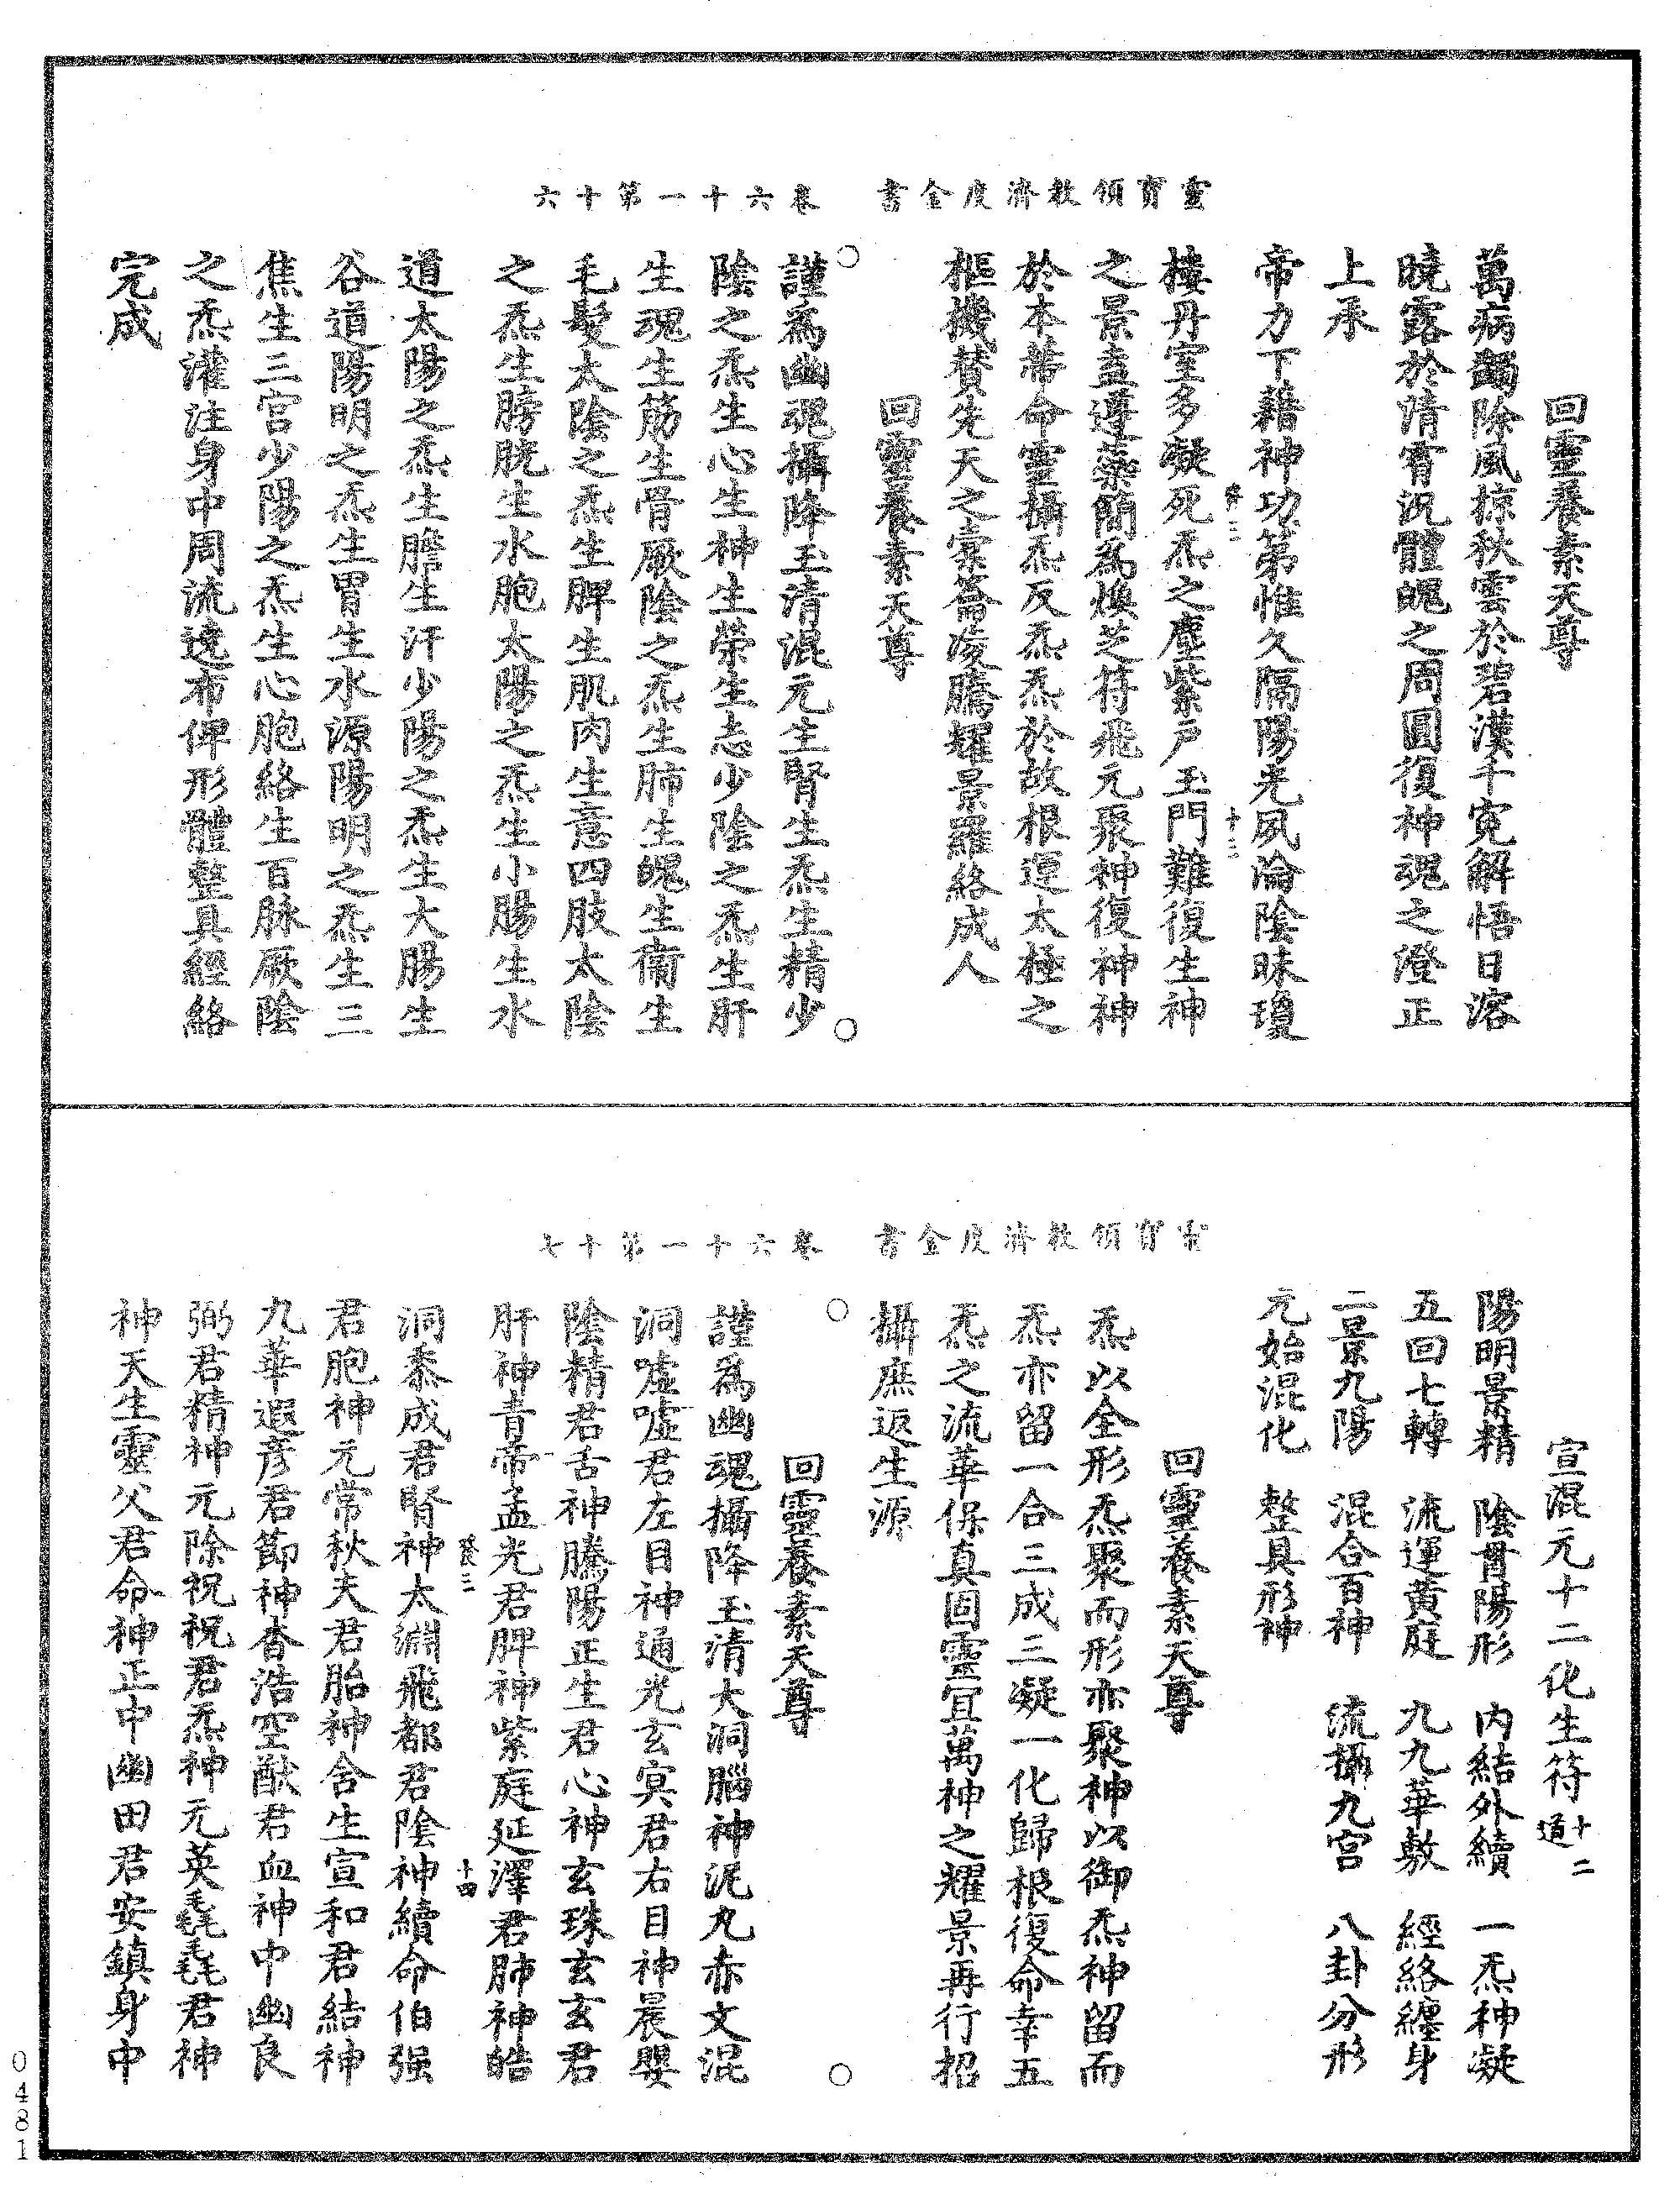 靈寶領教濟度金書　卷六十一第十六
回靈養素天尊
萬病蠲除風掠秋雲於碧漢千寃解悟日溶
曉露於清霄況體魄之周圓復神魂之澄正
上承
帝力下藉神功第惟久隔陽光夙淪陰昧瓊
樓丹室多凝死炁之塵紫戶玉門難復生神
之景壹遵蘂簡為煥芝符飛元聚神復神神
於本蒂命靈攝炁反炁炁於故根運太極之
樞機賛先天之橐籥凌騰耀景羅絡成人
回靈養素天尊
謹為幽魂攝降玉清混元生腎生炁生精少
陰之炁生心生神生榮生志少陰之炁生肝
生魂生筋生骨厥陰之炁生肺生魄生衛生
毛髮太陰之炁生脾生肌肉生意四肢太陰
之炁生膀胱生水胞太陽之炁生小腸生水
道太陽之炁生膽生汗少陽之炁生大腸生
谷道陽明之炁生胃生水源陽明之炁生三
焦生三宮少陽之炁生心胞絡生百脉厥陰
之炁灌注身中周流遶布俾形體整具經絡
完成
十三
靈寶領教濟度金書　卷六十一第十七
宣混元十二化生符十二道
陽明景精　陰胃陽形　內結外續　一炁神凝
五回七轉　流運黃庭　九九華敷　經絡纏身
二景九陽　混合百神　流攝九宮　八卦分形
元始混化　整具形神
回靈養素天尊
炁以全形炁聚而形亦聚神以御炁神留而
炁亦留一合三成三凝一化歸根復命幸五
炁之流華保真固靈宜萬神之耀景再行招
攝庶返生源
回靈養素天尊
謹為幽魂攝降玉清大洞腦神泥丸赤文混
洞噓噓君左目神通光玄冥君右目神晨嬰
陰精君舌神騰陽正生君心神玄珠玄玄君
肝神青帝孟光君脾神紫庭延澤君肺神皓
洞泰成君腎神太淵飛都君陰神續命伯强
君胞神元常秋夫君胎神含生宣和君結神
九華遐彥君節神杳浩空猷君血神中幽良
弼君精神元除祝祝君炁神元英毳毳君神
神天生靈父君命神正中幽田君安鎮身中
十四
0481